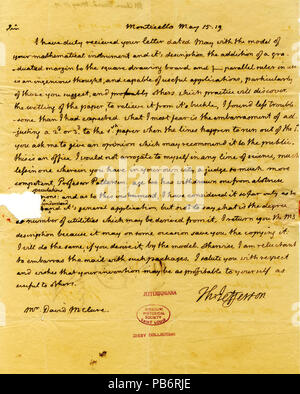 Sir Monticello May 15. 19
I have duly recieved your letter dated May with the model of
your mathematical instrument and it's description. the addition of a gra-
duated margin to the square drawing board and parallel ruler in use
is an ingenious thought, and capable of useful applications, particularly
of those you suggest, and probably others which practice will discover
the wetting of the paper to relieve it from it's buckle, I found less trouble
-some than I had expected. what I most fear is the embarrasment of ad-
justing a 2d or 3d to the 1st paper when the lines happen to run out of the
you ask me to give an opinion which may recommend it to the public.
this is an office I would not arrogate to myself in any line of science, much
less in one wherein you have in your own city a judge so much more
competent, Professor Patterson
general application, but
as number of utilities which may be derived from it. I return you the MS
description because it may on some occasion save you the copying it.
I will do the same, if you desire it, by the model. otherwise I am reluctant
to embarras the mail with such packages. I salute you with respect
and wishes that your invention may be as profitable to yourself as
useful to others.
Th: Jefferson
JEFFERSONIANA
MISSOURI
HISTORICAL
SOCIETY
SAINT LOUIS
BIXBY COLLECTION
Mr. David McClure.
alamy